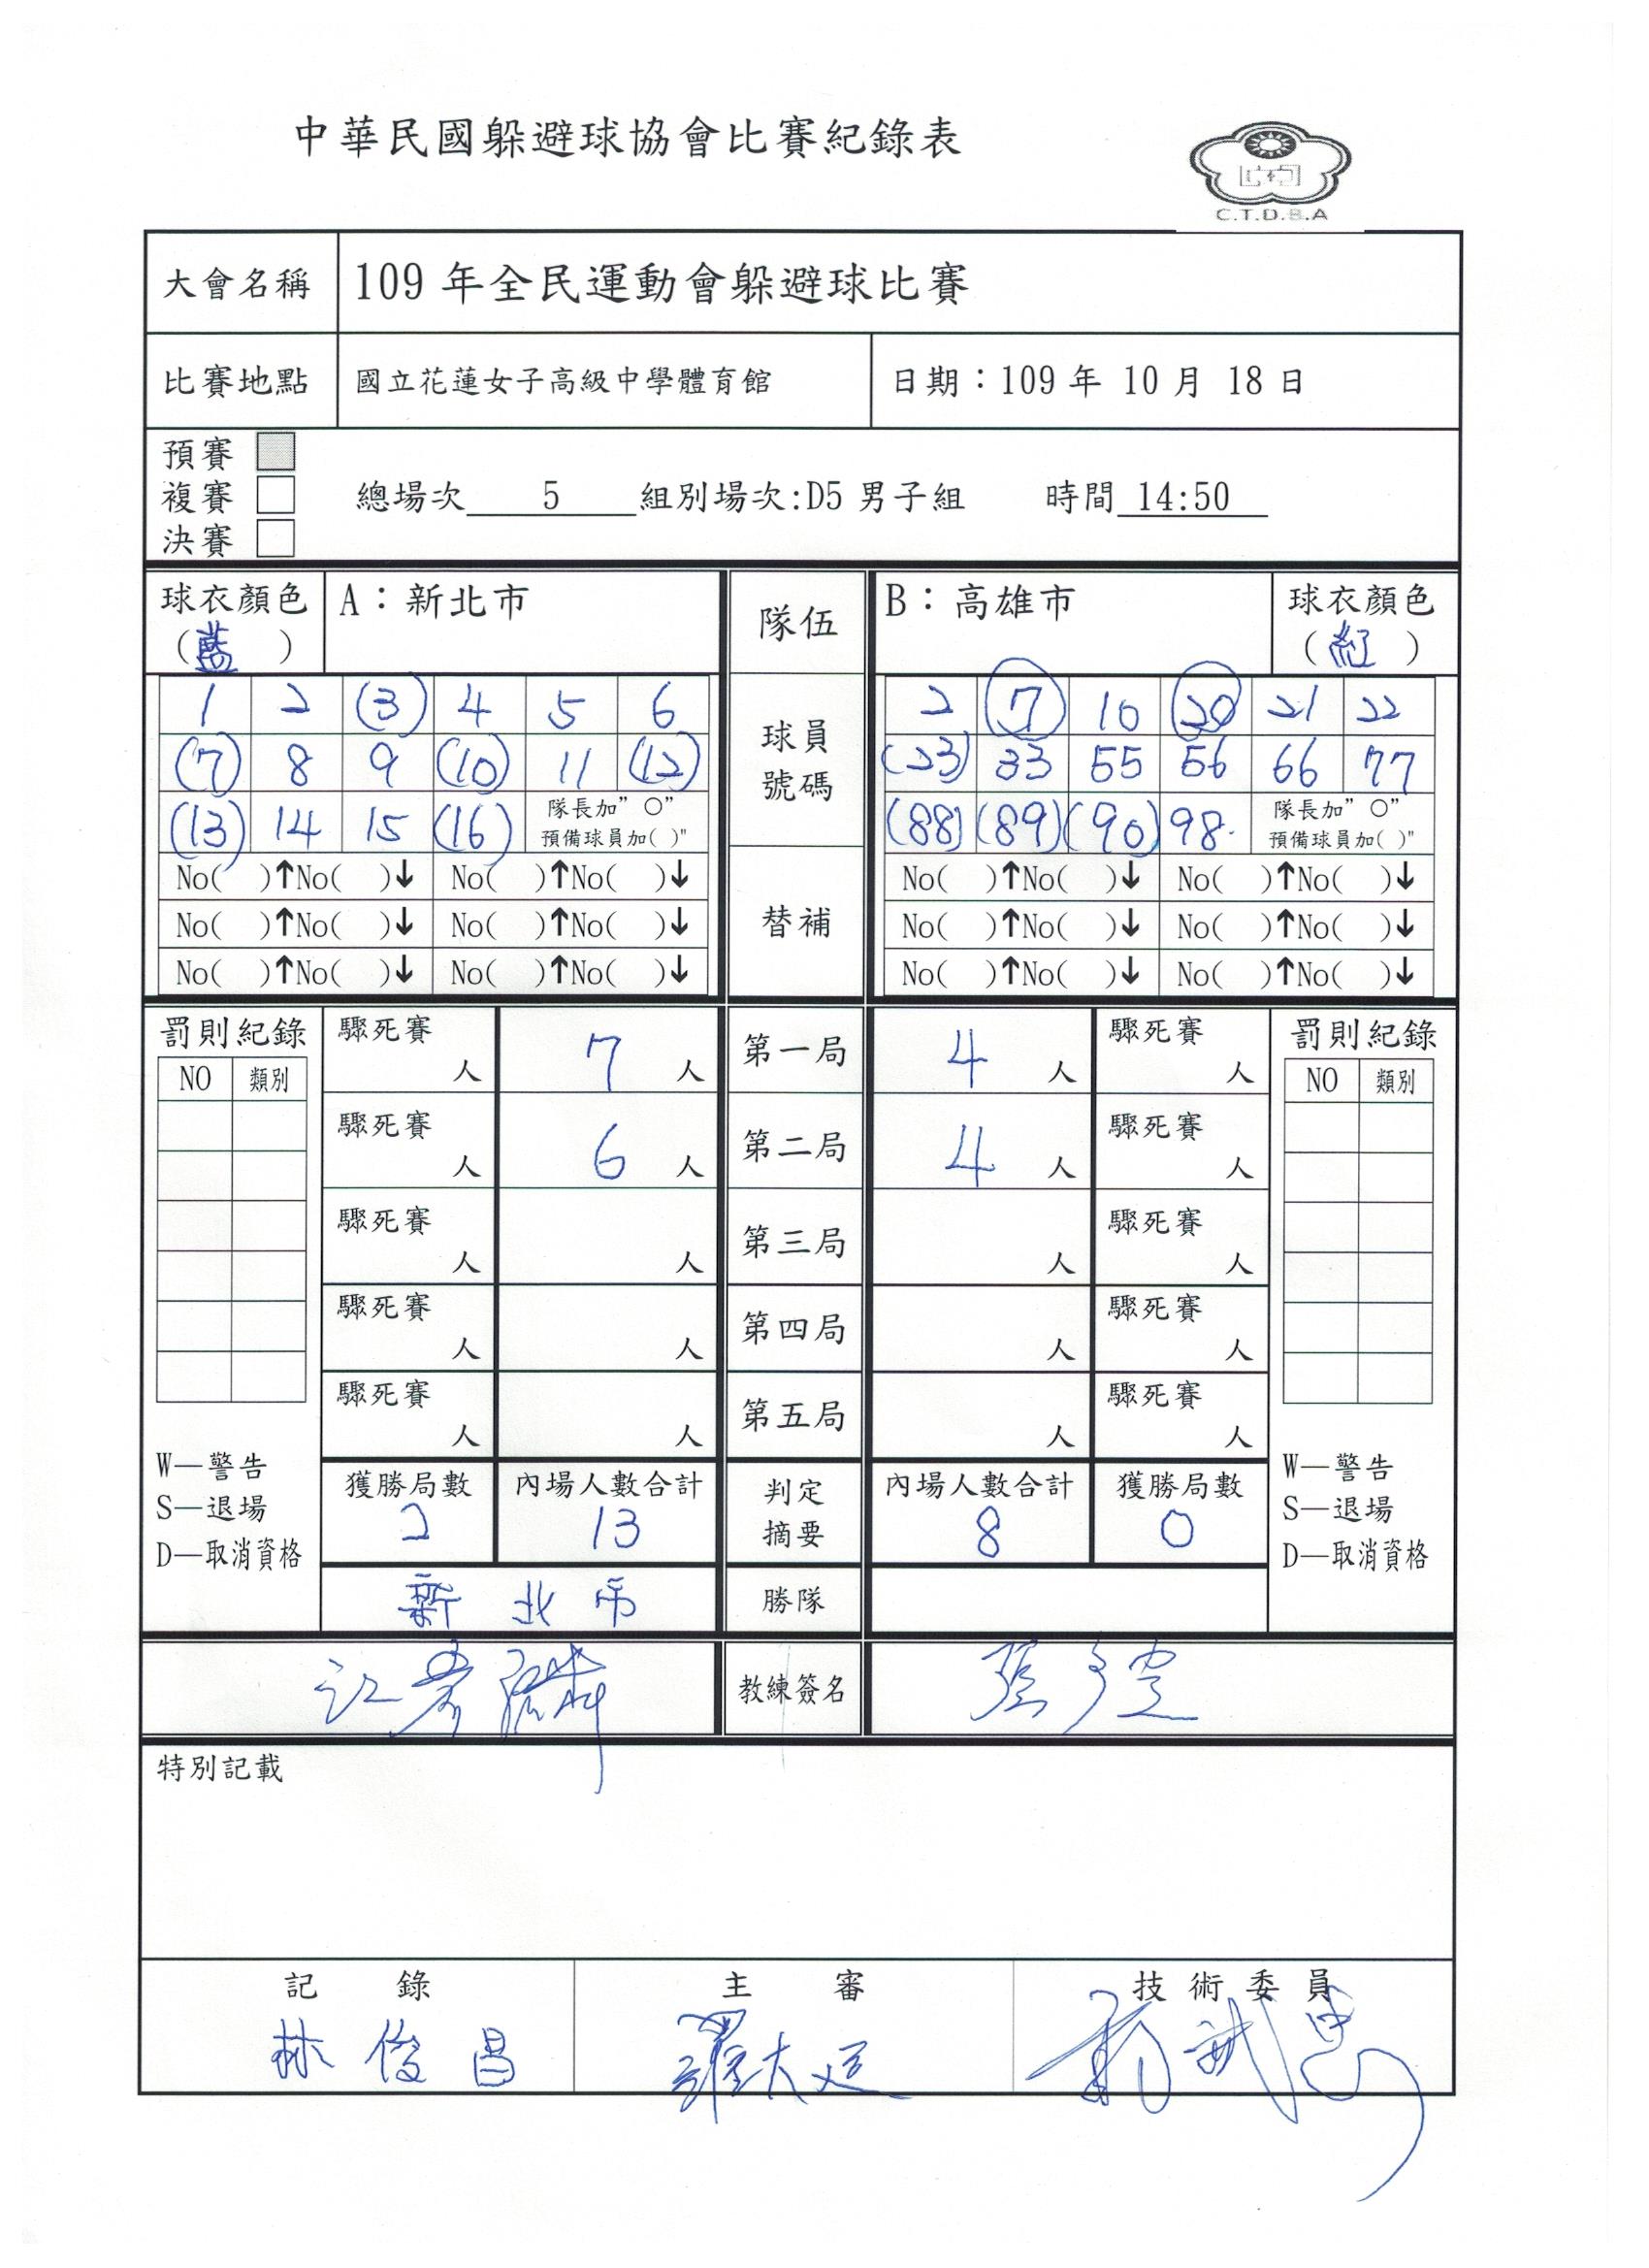 中華民國躲避球協會比賽紀錄表
C.T.D.B.A
大會名稱 109 年全民運動會躲避球比賽
比賽地點 國立花蓮女子高級中學體育館 日期：109 年 10 月 18 日
預賽
複賽 總場次 5 組別場次:D5 男子組 時間 14:50
決賽
球衣顏色 A：新北市 隊伍 B：高雄市 球衣顏色
(藍) (紅)
1 2 (3) 4 5 6 球員 2 7 10 20 21 22
(7) 8 9 (10) 11 (12) 號碼 (23) 33 55 56 66 77
(13) 14 15 (16) 隊長加"○" (88) (89) (90) 98. 隊長加"○"
預備球員加( )" 預備球員加( )"
No( )↑No( )↓ No( )↑No( )↓ No( )↑No( )↓ No( )↑No( )↓
No( )↑No( )↓ No( )↑No( )↓ 替補 No( )↑No( )↓ No( )↑No( )↓
No( )↑No( )↓ No( )↑No( )↓ No( )↑No( )↓ No( )↑No( )↓
罰則紀錄 驟死賽 人 7 人 第一局 4 人 驟死賽 人 罰則紀錄
NO 類別 NO 類別
驟死賽 人 6 人 第二局 4 人 驟死賽 人
驟死賽 人 人 第三局 人 驟死賽 人
驟死賽 人 人 第四局 人 驟死賽 人
驟死賽 人 人 第五局 人 驟死賽 人
W—警告 獲勝局數 內場人數合計 判定 內場人數合計 獲勝局數 W—警告
S—退場 2 13 摘要 8 0 S—退場
D—取消資格 D—取消資格
新北市 勝隊
教練簽名
特別記載
記錄 主審 技術委員
林俊昌